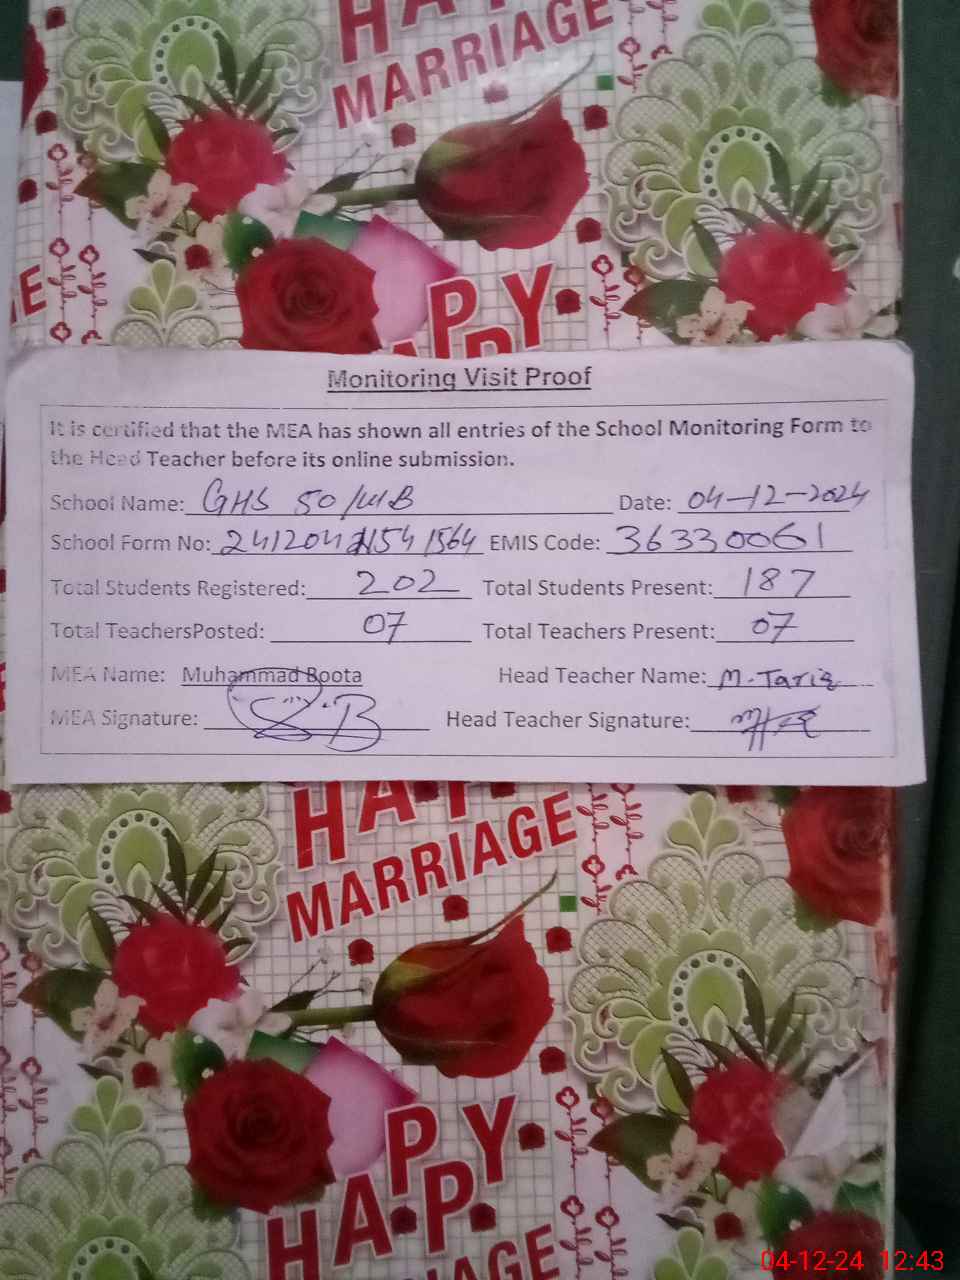 HAPPY
MARRIAGE
GE
HAPPY
Monitoring Visit Proof
It is certified that the MEA has shown all entries of the School Monitoring Form to
the Head Teacher before its online submission.
School Name: GHS 50/WB Date: 04-12-2024
School Form No: EMIS Code: 36330061
Total Students Registered: 202 Total Students Present: 187
Total TeachersPosted: 07 Total Teachers Present: 07
MEA Name: Muhammad Boota Head Teacher Name: M. Tariq
MEA Signature: Head Teacher Signature:
HAPPY
MARRIAGE
HAPPY
HAPPY
MARRIAGE
04-12-24 12:43